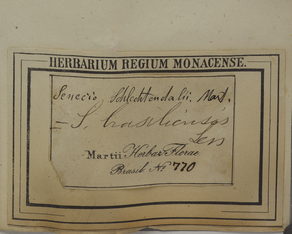 HERBARIUM REGIUM MONACENSE.
Senecio Schlechtendalii, Mart.
= S. brasiliensis
Less
Martii Herbar. Florae
Brasil. No 770